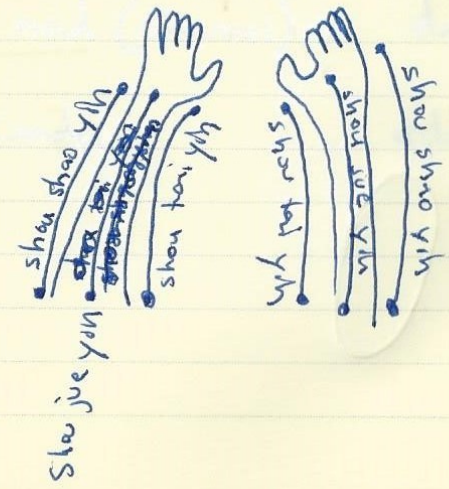 shou shao yin
shou tai yin
Shou jue yin
shou tai yin
shou jue yin
shou shao yin